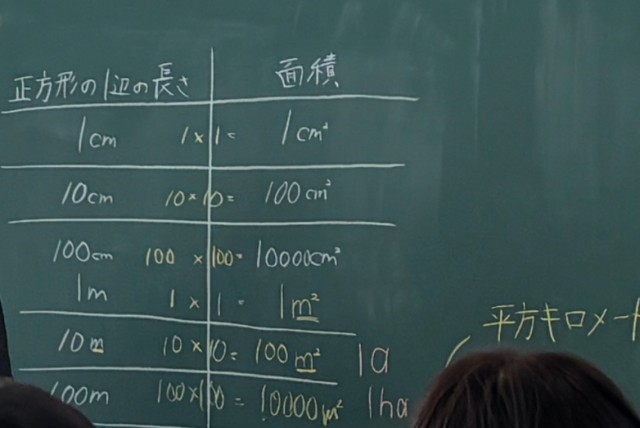 正方形の1辺の長さ 面積
1cm 1×1= 1cm²
10cm 10×10= 100cm²
100cm 100×100= 10000cm²
1m 1×1= 1m²
10m 10×10= 100m² 1a
100m 100×100= 10000m² 1ha
平方キロメート